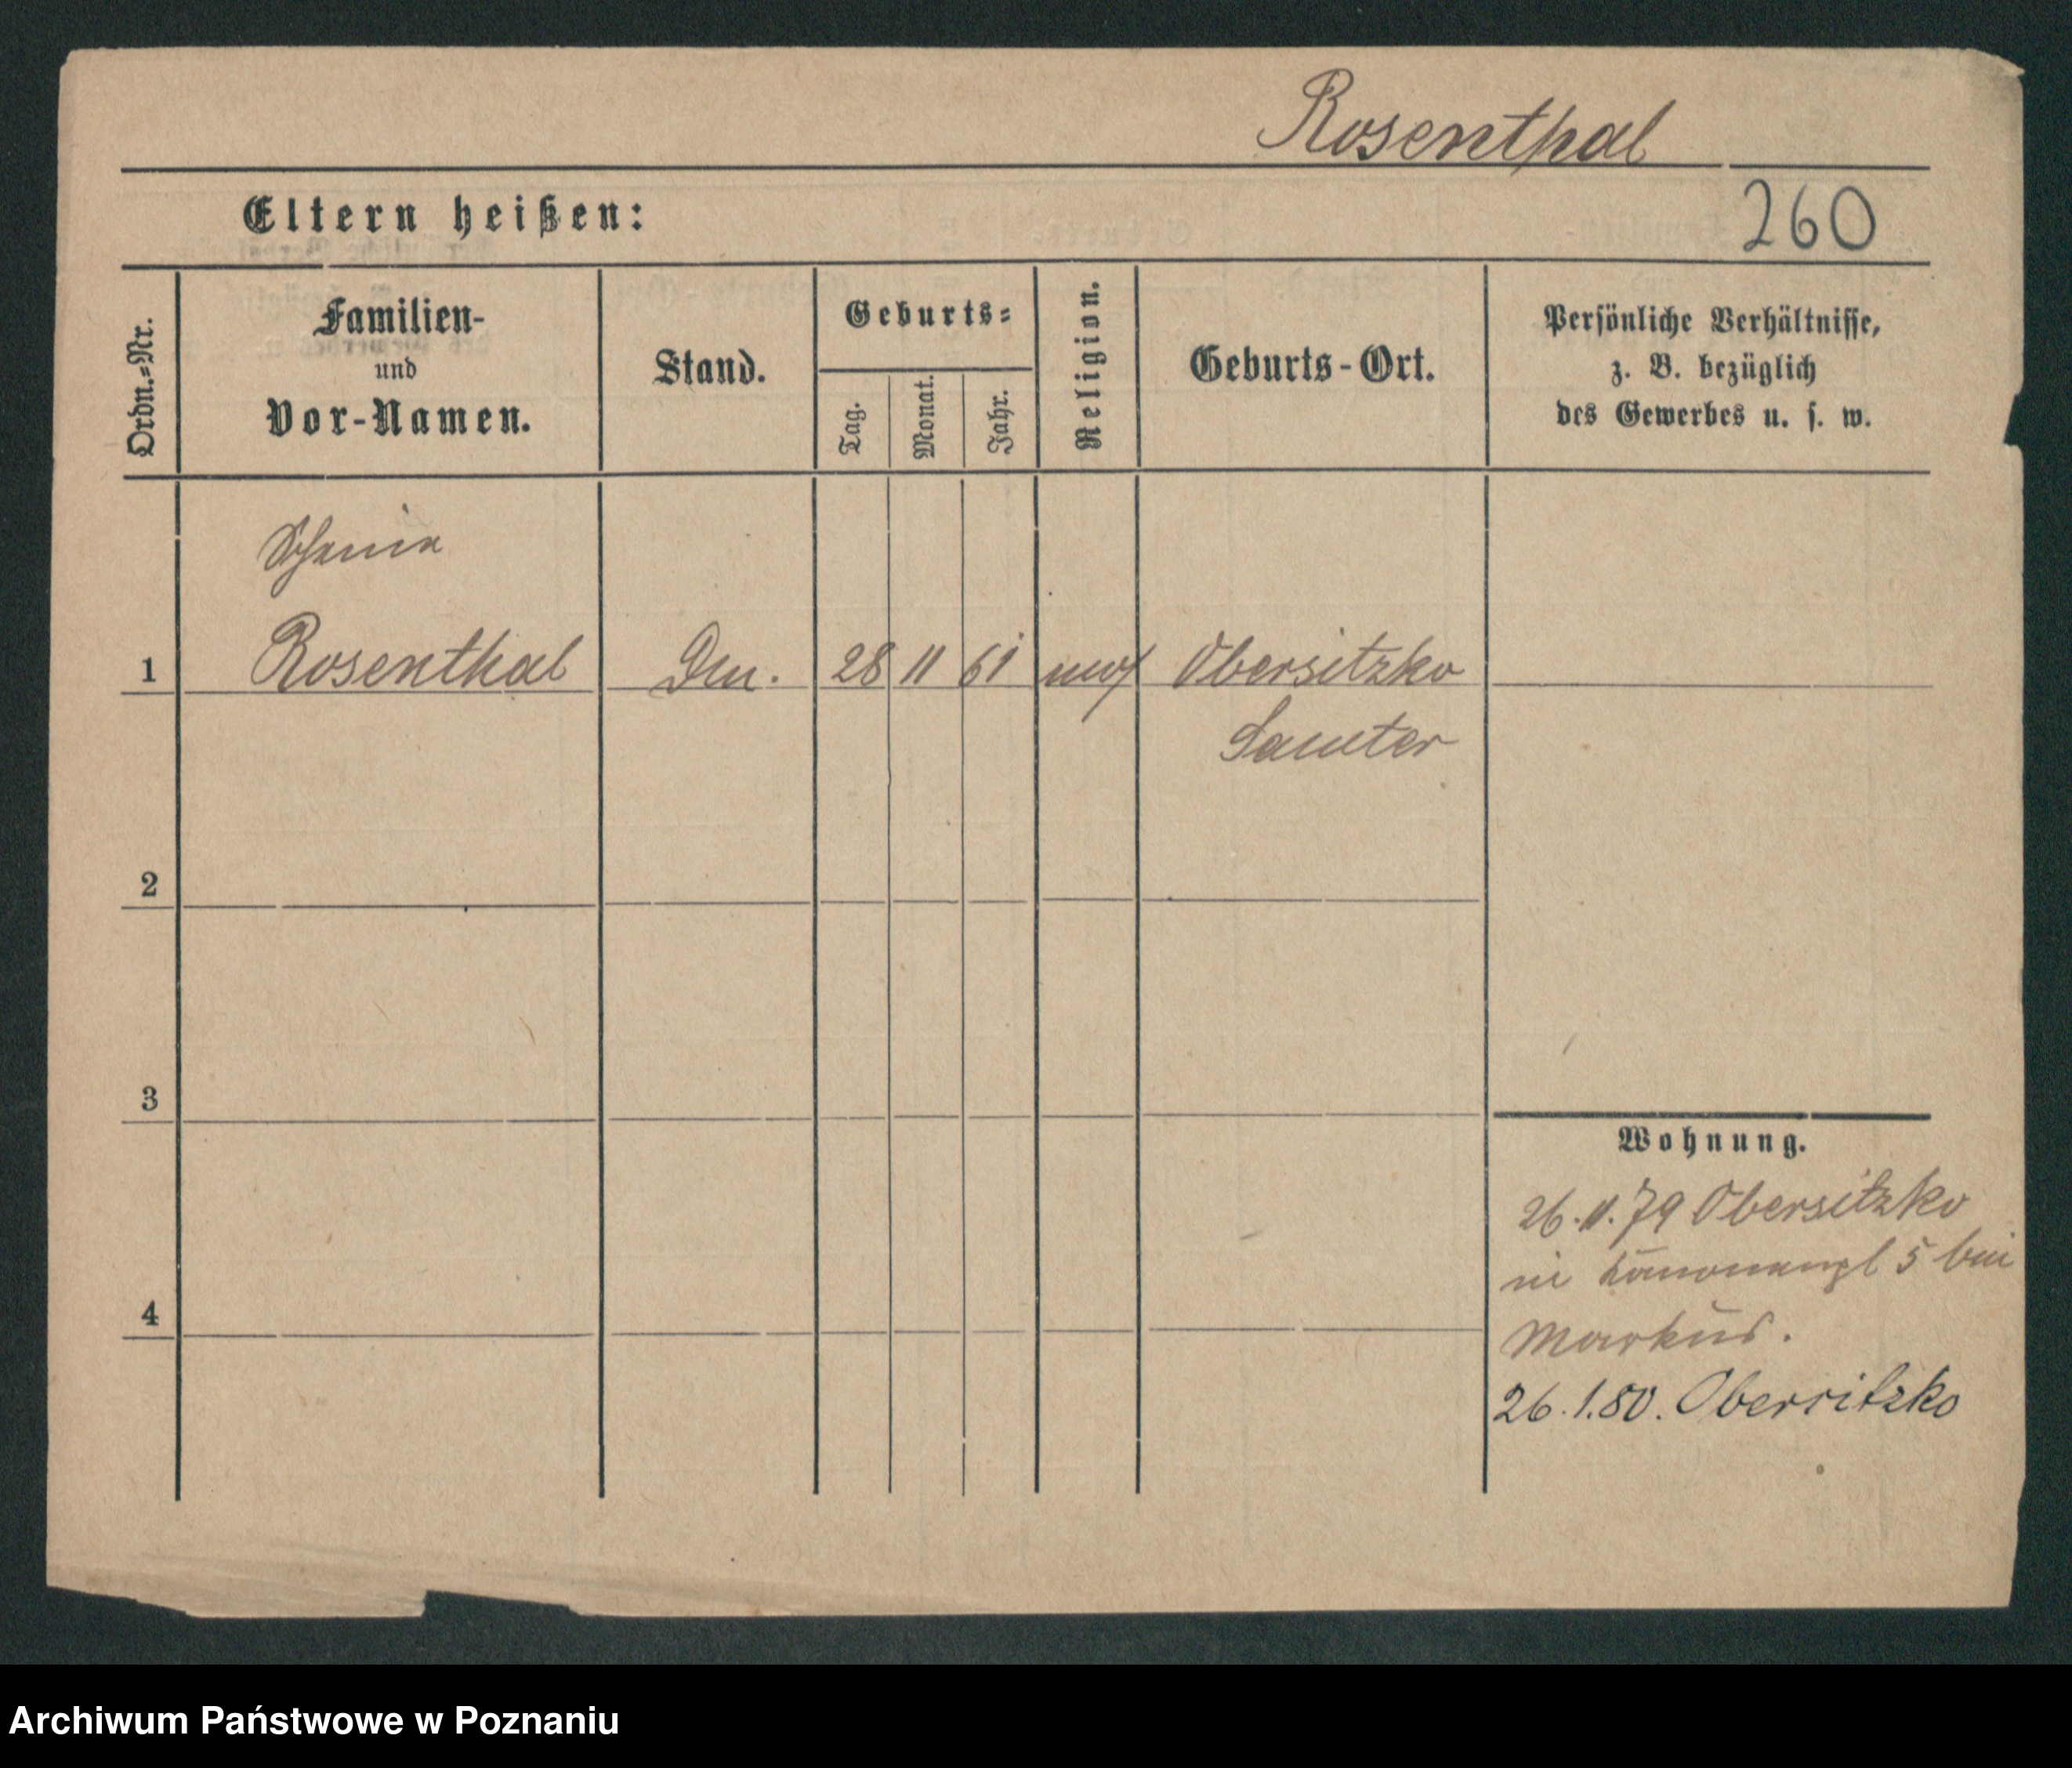 Rosenthal
Eltern heißen:
260
Ordn.=Nr.
Familien-
und
Vor-Namen.
Stand.
Geburts=
Tag.
Monat.
Jahr.
Religion.
Geburts-Ort.
Persönliche Verhältnisse,
z. B. bezüglich
des Gewerbes u. s. w.
1 Rosenthal 28 11 61 mos Obersitzko
Samter
2
3
Wohnung.
26.11.79 Obersitzko
in 5 bei
4
Markus.
26.1.80. Obersitzko
Archiwum Państwowe w Poznaniu